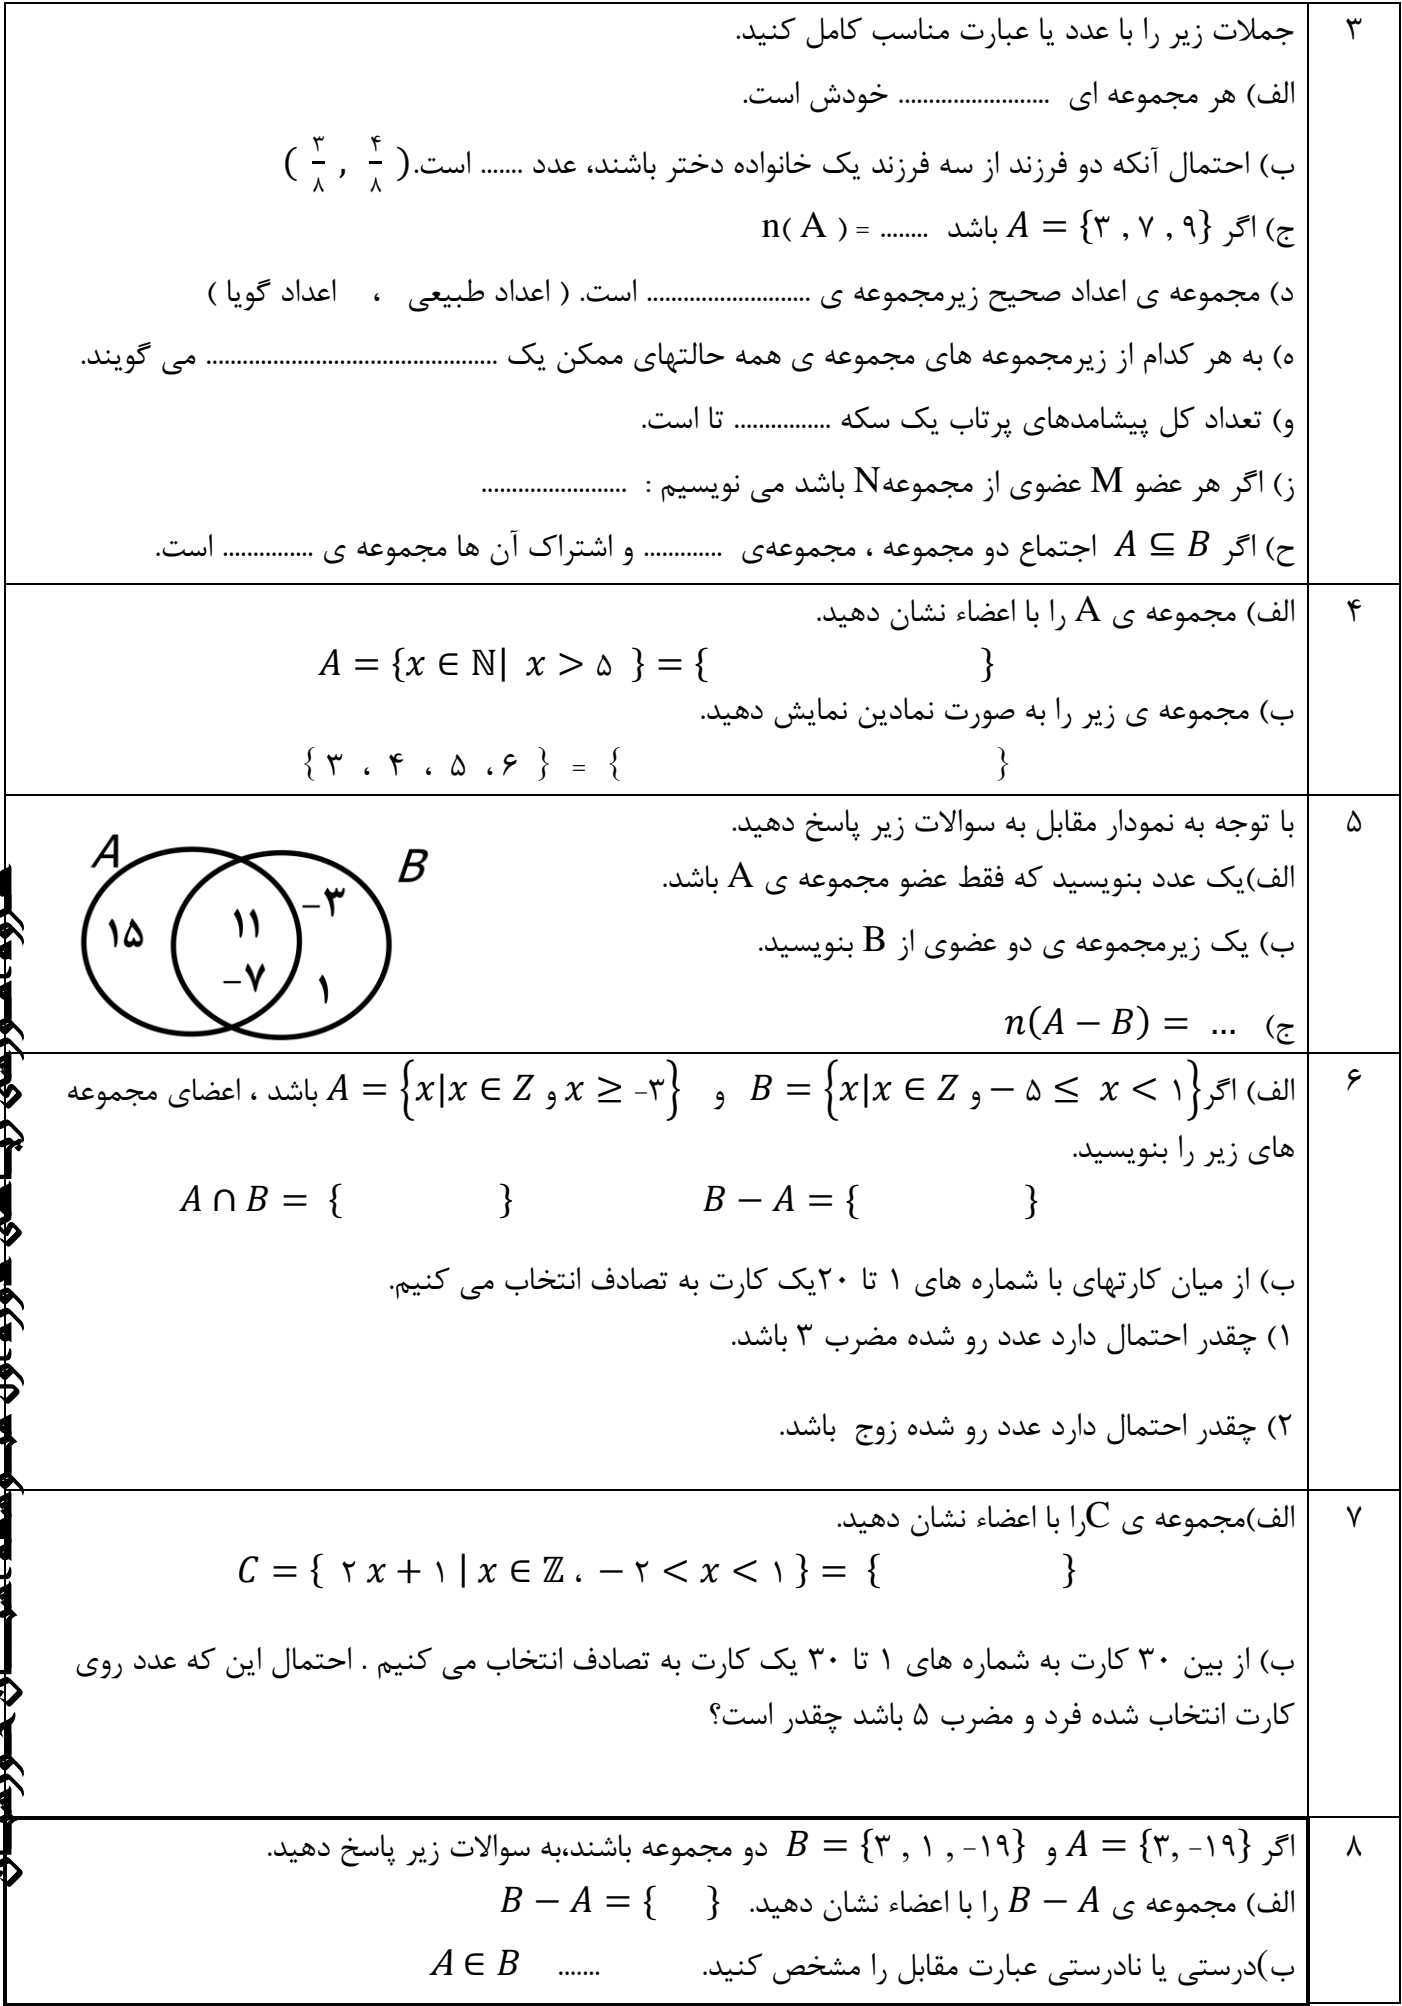 ۳
جملات زیر را با عدد یا عبارت مناسب کامل کنید.
الف) هر مجموعه ای ......................... خودش است.
ب) احتمال آنکه دو فرزند از سه فرزند یک خانواده دختر باشند، عدد ....... است.( ۳/۸ , ۴/۸ )
ج) اگر A = {۳ , ۷ , ۹} باشد n( A ) = ........
د) مجموعه ی اعداد صحیح زیرمجموعه ی ........................... است. ( اعداد طبیعی ، اعداد گویا )
ه) به هر کدام از زیرمجموعه های مجموعه ی همه حالتهای ممکن یک ................................................ می گویند.
و) تعداد کل پیشامدهای پرتاب یک سکه ................ تا است.
ز) اگر هر عضو M عضوی از مجموعهN باشد می نویسیم : ........................
ح) اگر A ⊆ B اجتماع دو مجموعه ، مجموعه‌ی ............. و اشتراک آن ها مجموعه ی ............... است.
۴
الف) مجموعه ی A را با اعضاء نشان دهید.
A = {x ∈ ℕ| x > ۵ } = { }
ب) مجموعه ی زیر را به صورت نمادین نمایش دهید.
{ ۳ ، ۴ ، ۵ ، ۶ } = { }
۵
با توجه به نمودار مقابل به سوالات زیر پاسخ دهید.
الف)یک عدد بنویسید که فقط عضو مجموعه ی A باشد.
ب) یک زیرمجموعه ی دو عضوی از B بنویسید.
ج) n(A − B) = ...
A
B
۱۵
۱۱
−۷
−۳
۱
۶
الف) اگر B = {x|x ∈ Z و − ۵ ≤ x < ۱} و A = {x|x ∈ Z و x ≥ −۳} باشد ، اعضای مجموعه
های زیر را بنویسید.
A ∩ B = { } B − A = { }
ب) از میان کارتهای با شماره های ۱ تا ۲۰یک کارت به تصادف انتخاب می کنیم.
۱) چقدر احتمال دارد عدد رو شده مضرب ۳ باشد.
۲) چقدر احتمال دارد عدد رو شده زوج باشد.
۷
الف)مجموعه ی Cرا با اعضاء نشان دهید.
C = { ۲ x + ۱ | x ∈ ℤ ، − ۲ < x < ۱ } = { }
ب) از بین ۳۰ کارت به شماره های ۱ تا ۳۰ یک کارت به تصادف انتخاب می کنیم . احتمال این که عدد روی
کارت انتخاب شده فرد و مضرب ۵ باشد چقدر است؟
۸
اگر A = {۳, −۱۹} و B = {۳ , ۱ , −۱۹} دو مجموعه باشند،به سوالات زیر پاسخ دهید.
الف) مجموعه ی B − A را با اعضاء نشان دهید. B − A = { }
ب)درستی یا نادرستی عبارت مقابل را مشخص کنید. ....... A ∈ B